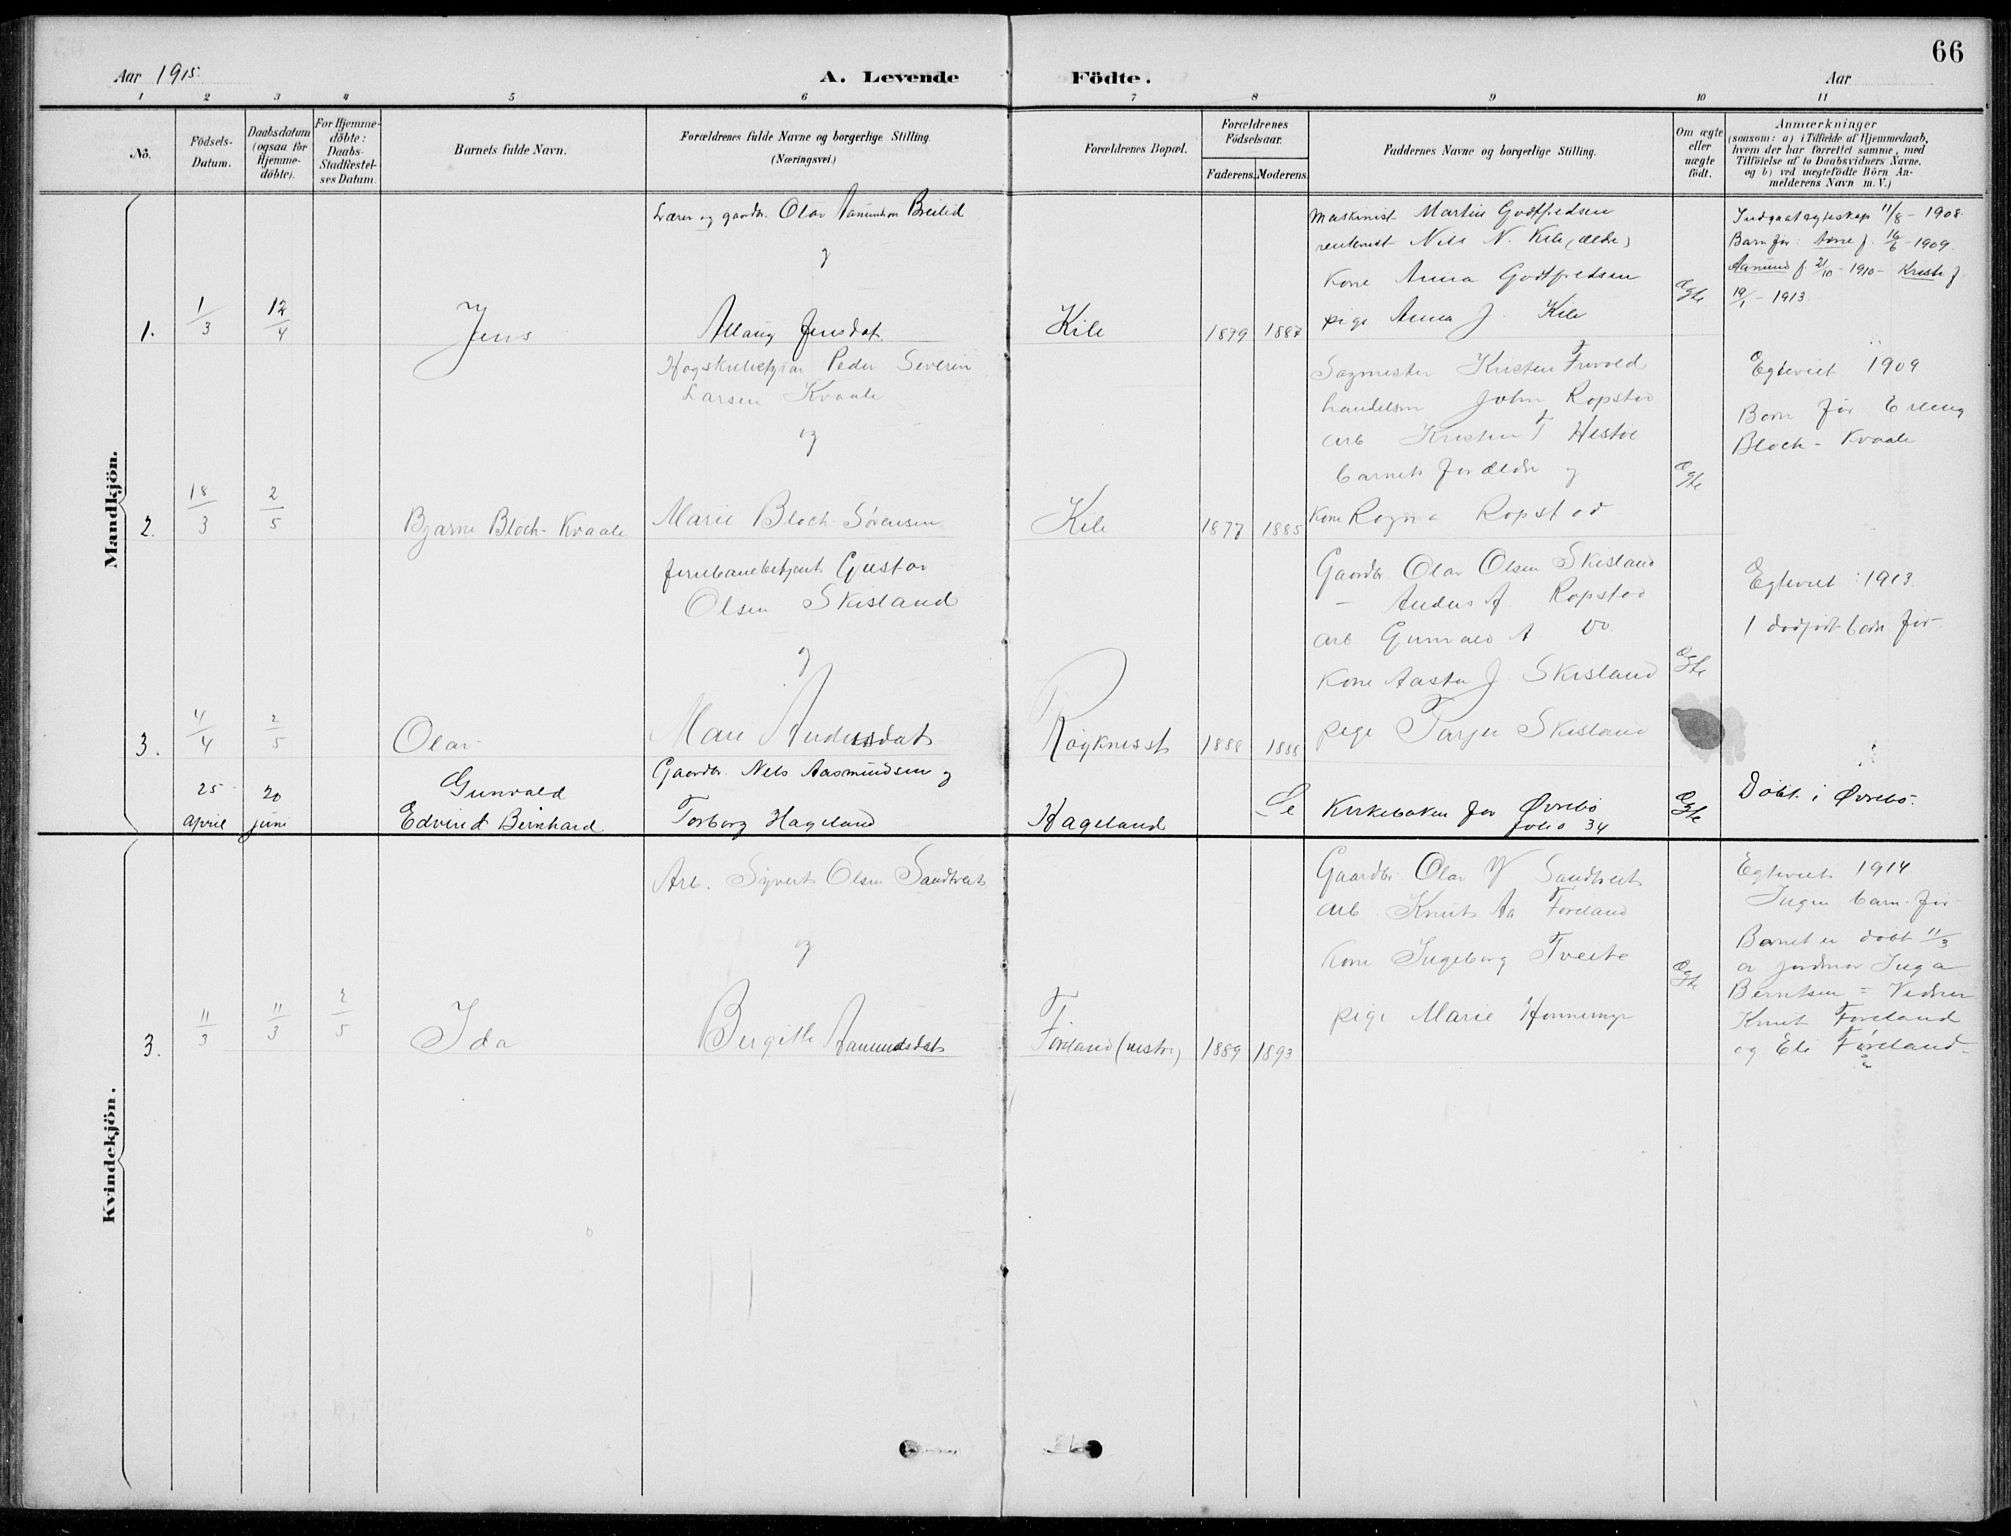 66
Aar 1915.
A. Levende Födte.
Aar
1 2 3 4 5 6 7 8 9 10 11
No.
Födsels-
Datum.
Daabsdatum
(ogsaa for
Hjemme-
döbte).
For Hjemme-
döbte:
Daabs-
Stadfæstel-
ses Datum.
Barnets fulde Navn.
Forældrenes fulde Navne og borgerlige Stilling.
(Næringsvei.)
Forældrenes Bopæl.
Forældrenes
Födselsaar.
Faderens. Moderens.
Faddernes Navne og borgerlige Stilling.
Om ægte
eller
uægte
födt.
Anmærkninger
(saasom: a) i Tilfælde af Hjemmedaab,
hvem der har forrettet samme, med
Tilföielse af to Daabsvidners Navne,
og b) ved uægtefödte Börn An-
melderens Navn m. V.)
Mandkjön.
1.
1/3
12/4
Jens
Lærer og gaardbr. Olav Aamundson Breilid
og
Allaug Jensdat.
Kile
1879 1887
Maskinist Martin Godtfredsen
rentenist Nels N. Kile (ældre)
Kone Anna Godtfredsen
pige Anna J. Kile
Ægte
Indgaat ægteskap 11/8 - 1908.
Barn før: Arne f. 16/6 - 1909.
Aamund f. 21/10 - 1910 - Kristi f.
19/1 - 1913.
2.
18/3
2/5
Bjarne Bloch-Kvaale
Peder Severin
Larsen Kvaale
og
Marie Bloch Sørensen
Kile
1877 1885
Sagmester Kristen Frivold
handelsm John Ropstad
arb Kristen T
barnets forældre og
Kone Ragna Ropstad
Ægte
Egteviet 1909
Barn før Erling
Bloch-Kvaale
3.
4/4
2/5
Olav
jernbanebetjent Gustav
Olsen Skisland
og
Mari Andersdat
Røyknesst
1888 1888
Gaardbr. Olav Olsen Skisland
— Anders A. Ropstad
arb Gunvald A Do
Kone Aasta J Skisland
pige Tarjer Skisland
Ægte
Egteviet 1913.
1 dødfødt barn før
25 april
20 juni
Gunvald
Edvind Bernhard
Gaardbr. Nels Aasmundsen og
Torborg Hageland
Hageland
Se Kirkeboken for Øvrebø
folio 34
Ægte
Døbt i Øvrebø.
Kvindekjön.
3.
11/3
11/3
2/5
Ida
Arb. Syvert Olsen Sandtveit
og
Birgitte Aamundsdat
Føreland (vestre)
1889 1893
Gaardbr Olav Sandtveit
arb Knut Aa Føreland
Kone Ingeborg Tveite
pige Marie Honnemyr
Ægte
Egteviet 1914
Ingen barn før
Barnet er døbt 11/3
av jordmor Inga
Berntsen = Vidner
Knut Føreland
og Eli Føreland